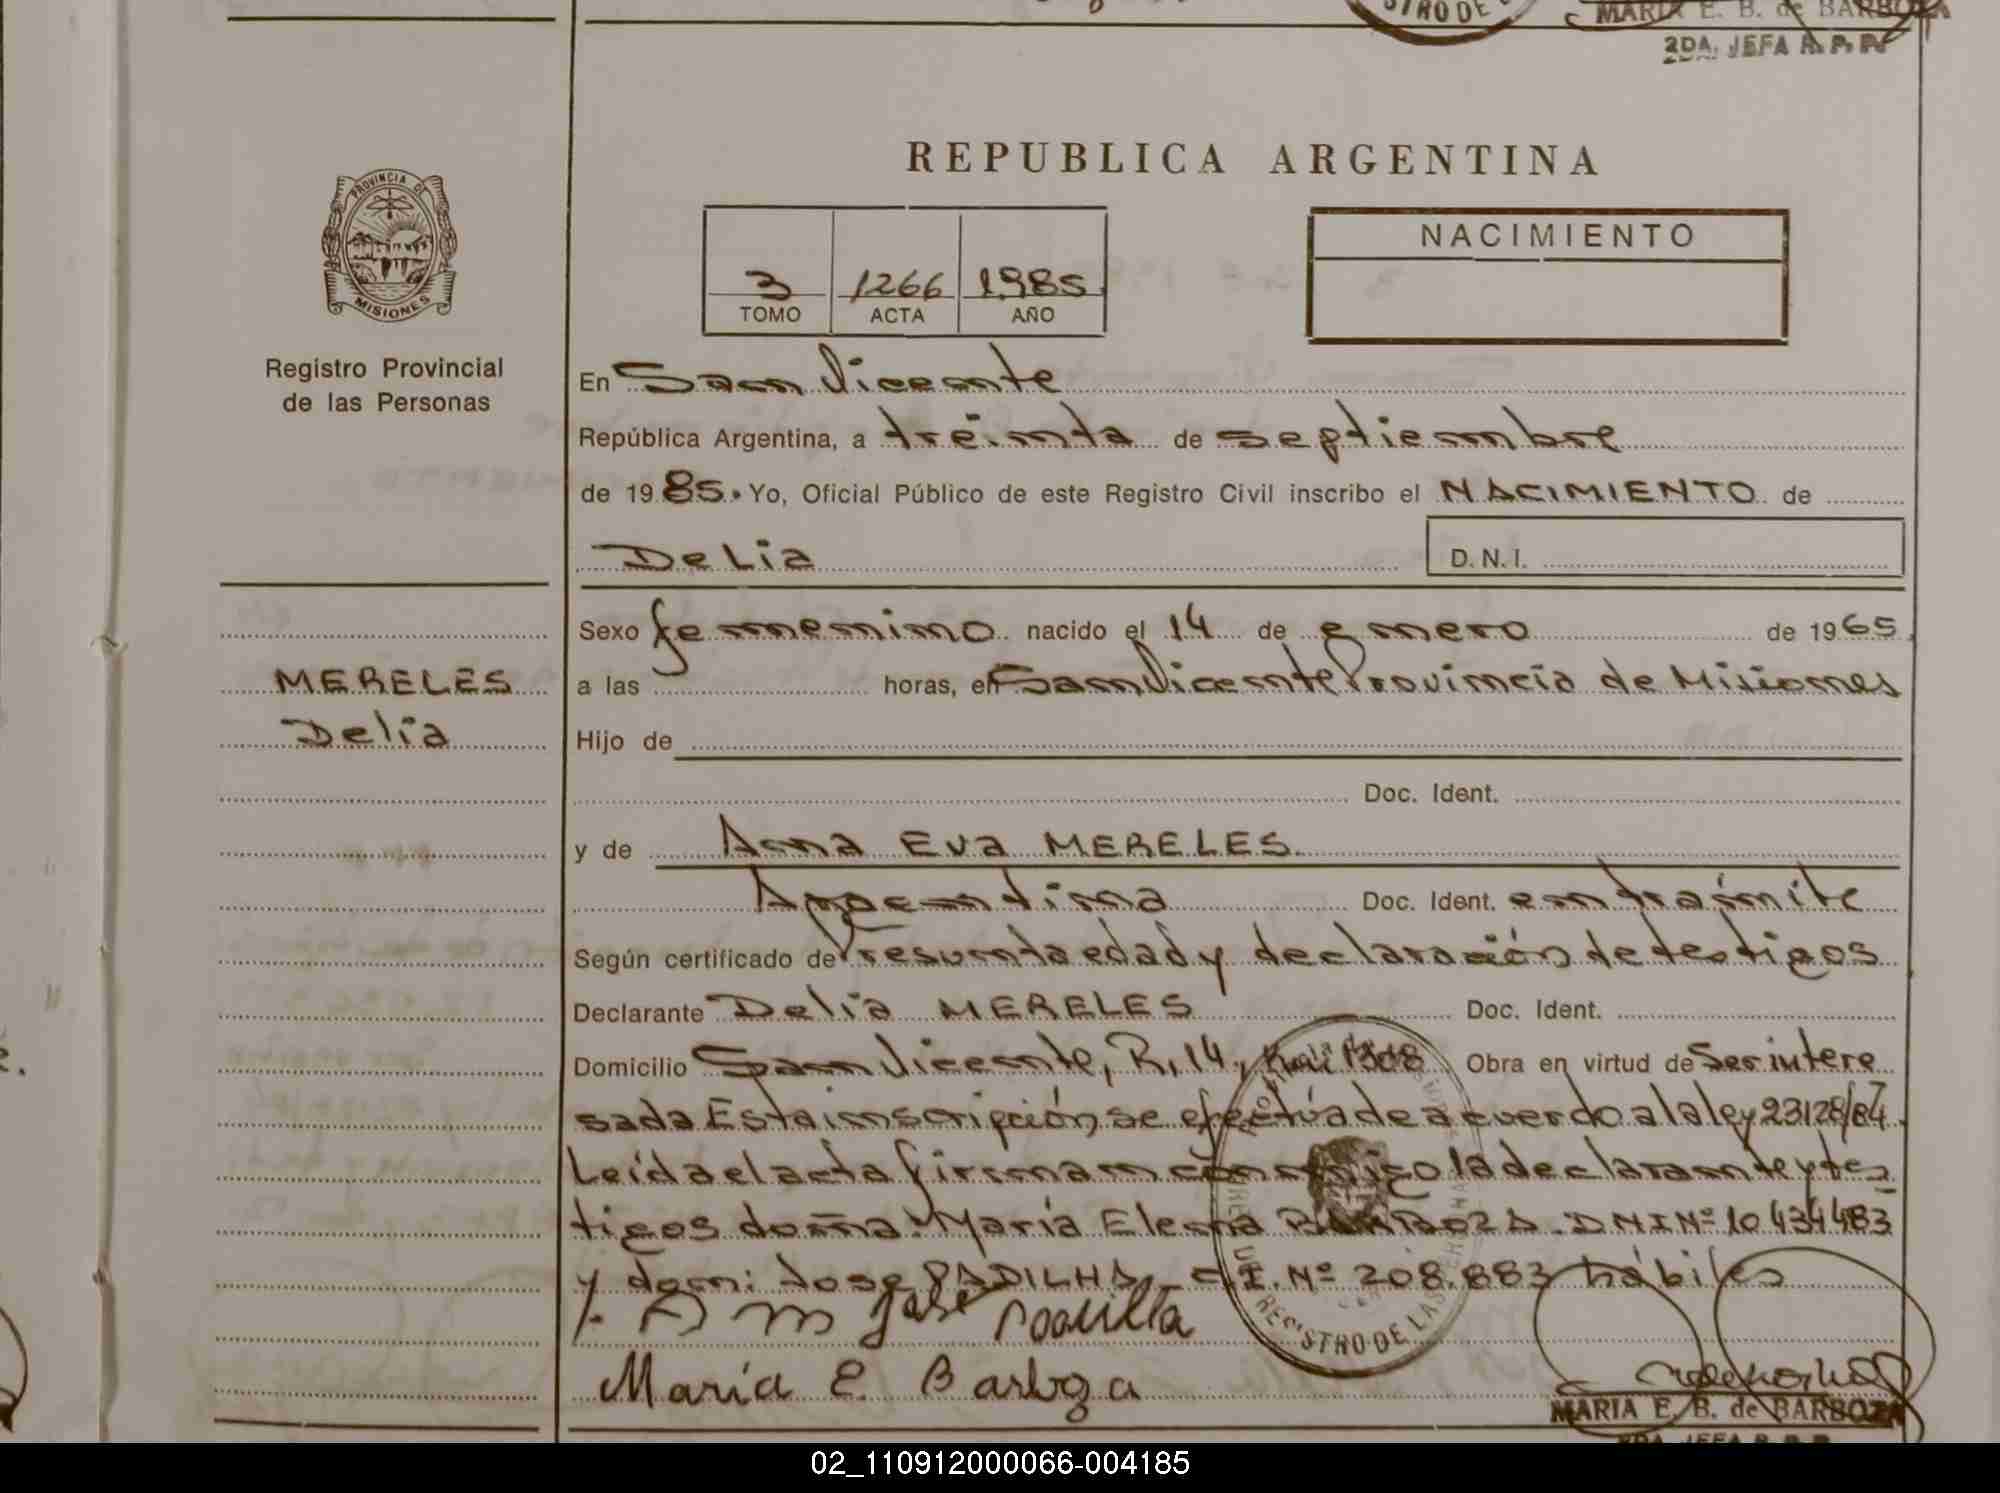 STRO DE
MARIA E. B. de BARBOZA
2DA. JEFA R. P. P.
REPUBLICA ARGENTINA
PROVINCIA DE
MISIONES
NACIMIENTO
3 1266 1985
TOMO ACTA AÑO
Registro Provincial
de las Personas
En San Vicente
República Argentina, a treinta de septiembre
de 1985. Yo, Oficial Público de este Registro Civil inscribo el NACIMIENTO de
Delia D.N.I.
Sexo femenino nacido el 14 de enero de 1965
MERELES
Delia
a las horas, en San Vicente Provincia de Misiones
Hijo de
Doc. Ident.
y de Anna Eva MERELES
Argentina Doc. Ident. en trámite
Según certificado de Presunta edad y declaración de testigos
Declarante Delia MERELES Doc. Ident.
Domicilio San Vicente, R. 14, 1308 Obra en virtud de Ser intere
sada Esta inscripción se efectúa de acuerdo a la ley 23128/84
Leída el acta firman conmigo la declarante y tes
tigos doña: María Elena BARBOZA. DNI Nº 10 434 483
y don: Jose PADILHA - C.I. Nº 208.883 hábiles
D m José Padilla
REGISTRO DE LAS
María E. Barboza
MARIA E. B. de BARBOZA
2DA. JEFA R. P. P.
02_110912000066-004185